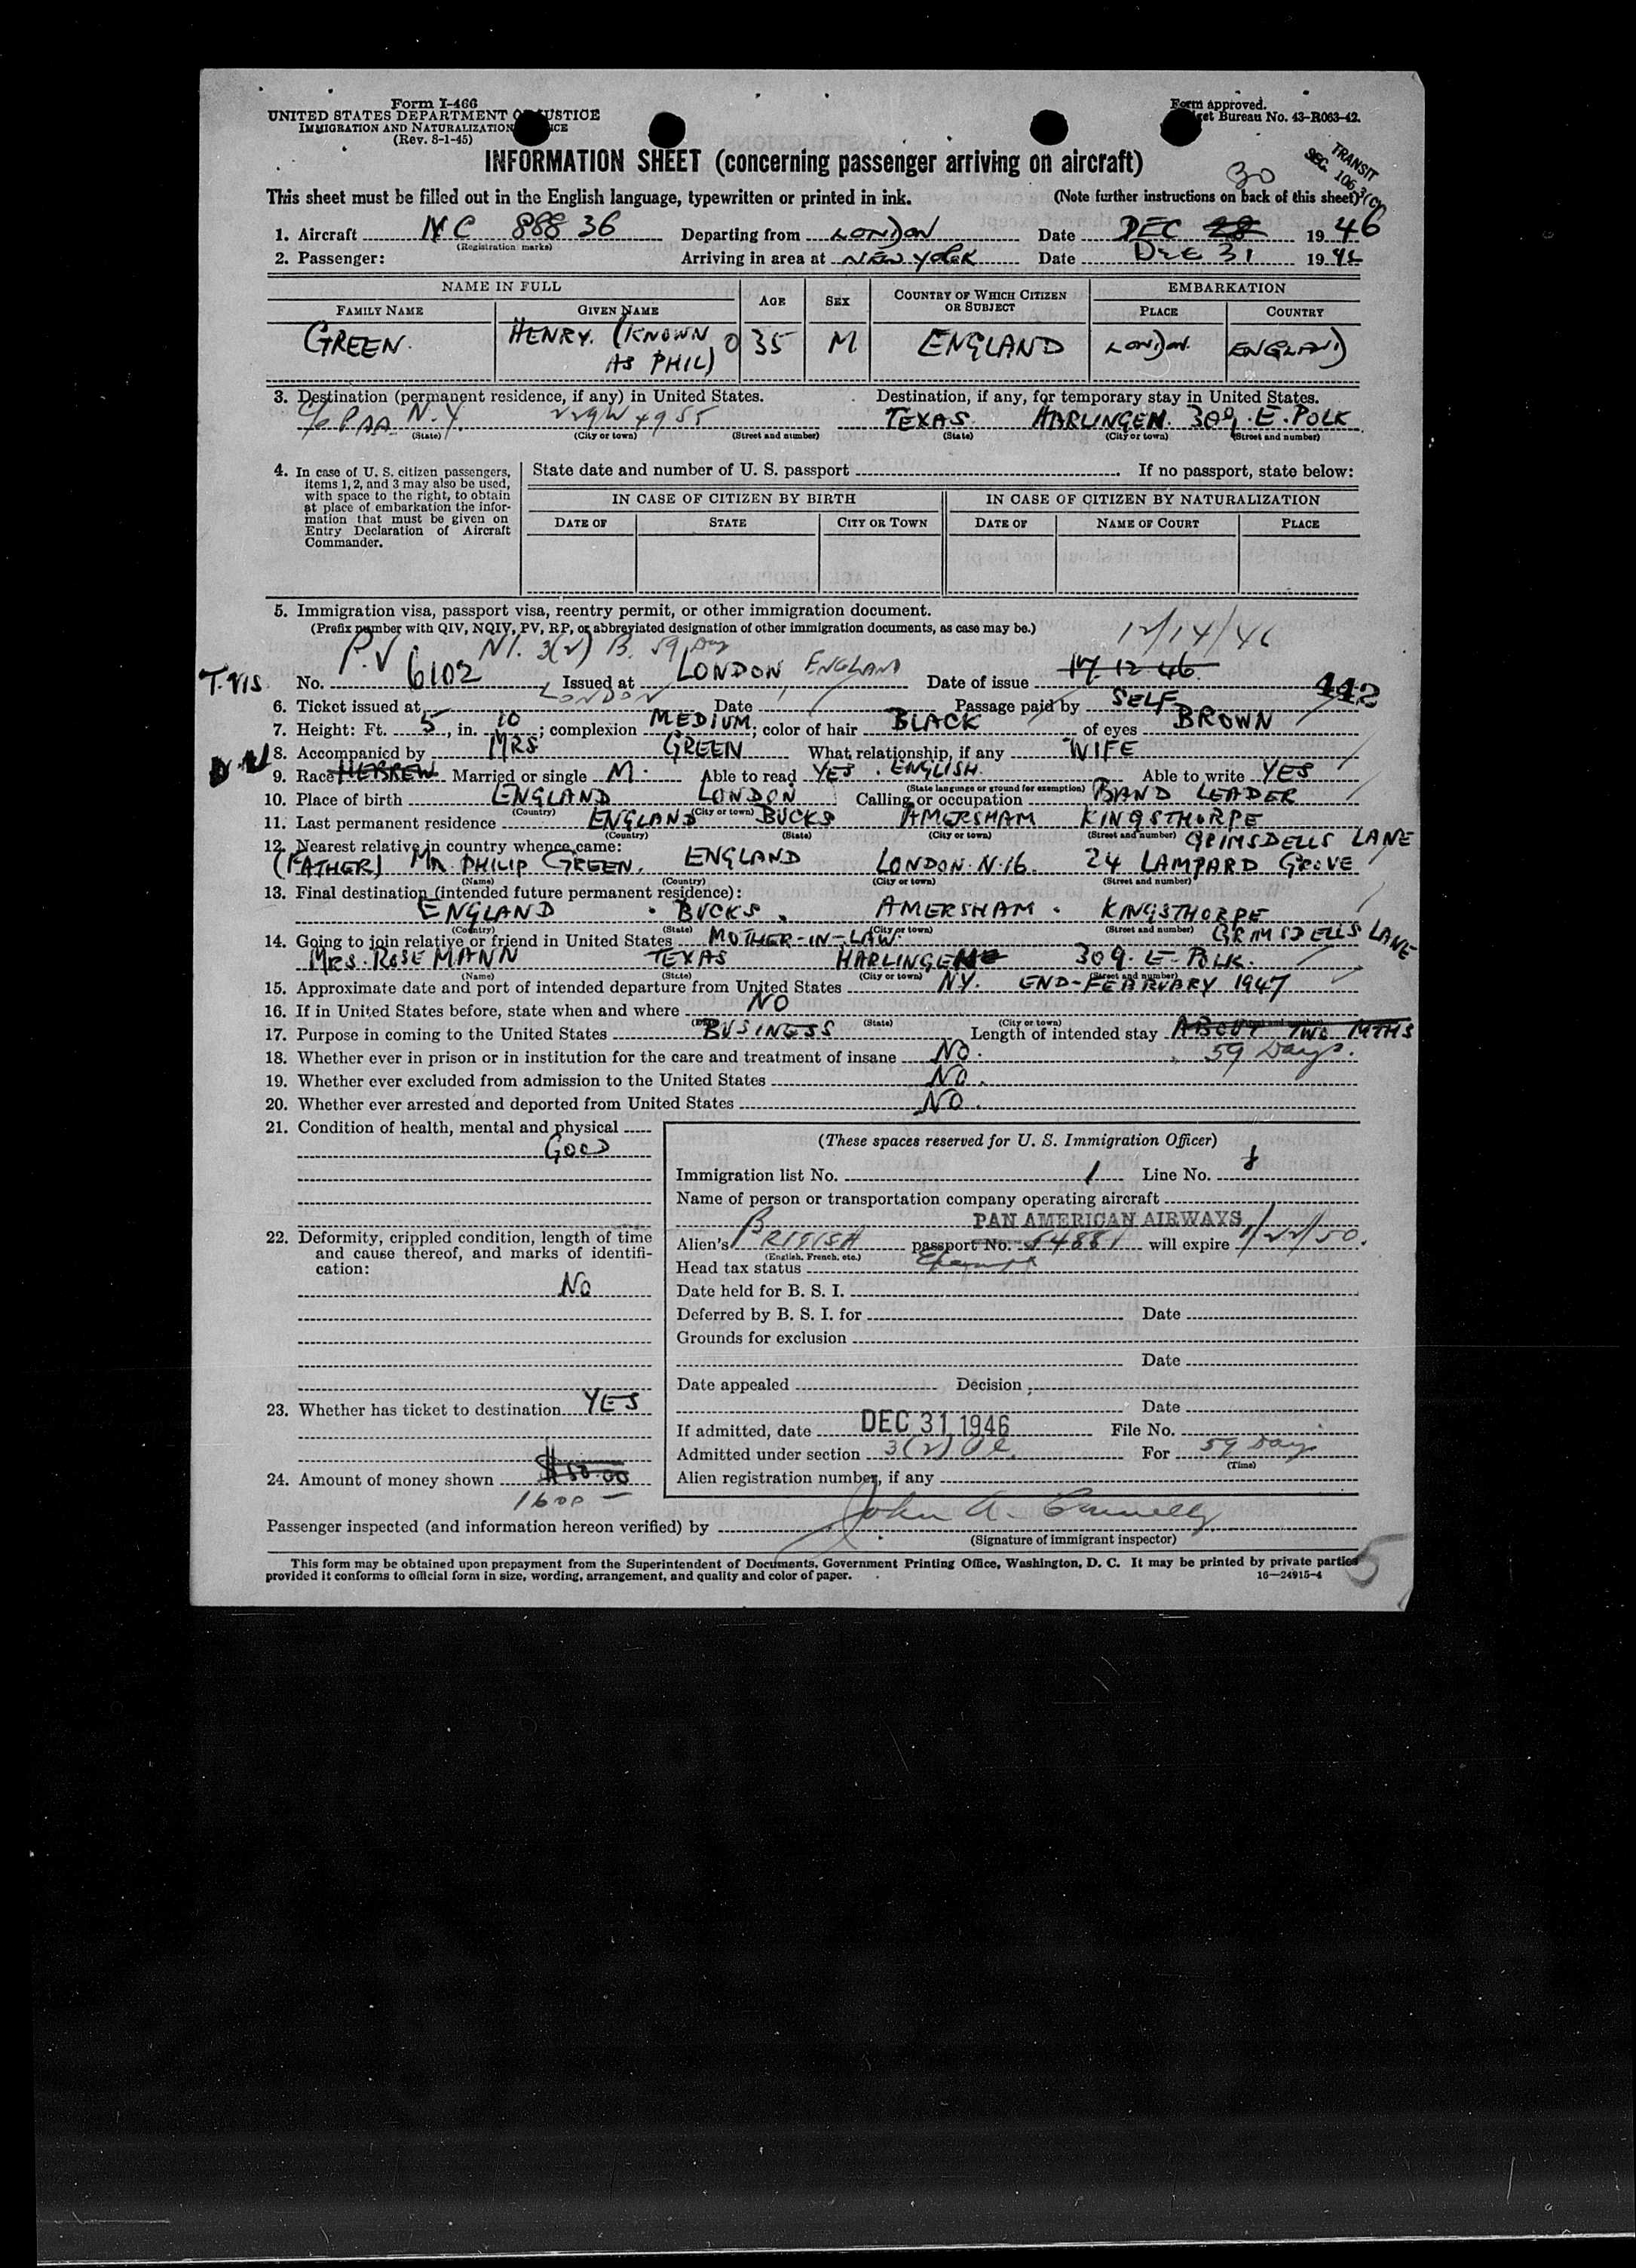 Form I-466
UNITED STATES DEPARTMENT OF JUSTICE
IMMIGRATION AND NATURALIZATION
(Rev. 8-1-45)
Form approved.
Bureau No. 43-R063-42.
INFORMATION SHEET (concerning passenger arriving on aircraft)
TRANSIT
SEC. 106.3(C)
30
This sheet must be filled out in the English language, typewritten or printed in ink. (Note further instructions on back of this sheet)
1. Aircraft NC 88836 Departing from LONDON Date DEC 28 1946
(Registration marks)
2. Passenger: Arriving in area at NEW YORK Date DEC 31 1946
NAME IN FULL AGE SEX COUNTRY OF WHICH CITIZEN OR SUBJECT EMBARKATION
FAMILY NAME GIVEN NAME PLACE COUNTRY
GREEN. HENRY. (KNOWN AS PHIL) 35 M ENGLAND LONDON. ENGLAND
3. Destination (permanent residence, if any) in United States. Destination, if any, for temporary stay in United States.
C/o PAA N.Y. 229 W 49 TEXAS. HARLINGEN. 309. E. POLK
(State) (City or town) (Street and number) (State) (City or town) (Street and number)
4. In case of U. S. citizen passengers, items 1, 2, and 3 may also be used, with space to the right, to obtain at place of embarkation the information that must be given on Entry Declaration of Aircraft Commander.
State date and number of U. S. passport If no passport, state below:
IN CASE OF CITIZEN BY BIRTH IN CASE OF CITIZEN BY NATURALIZATION
DATE OF STATE CITY OR TOWN DATE OF NAME OF COURT PLACE
5. Immigration visa, passport visa, reentry permit, or other immigration document.
(Prefix number with QIV, NQIV, PV, RP, or abbreviated designation of other immigration documents, as case may be.)
12/14/46
P.V. 3(2) B. 59 Day
T.VIS. No. 6102 Issued at LONDON ENGLAND Date of issue 17 12 46.
442
6. Ticket issued at LONDON Date Passage paid by SELF
7. Height: Ft. 5, in. 10; complexion MEDIUM; color of hair BLACK of eyes BROWN
8. Accompanied by MRS GREEN What relationship, if any WIFE
9. Race HEBREW Married or single M. Able to read YES. ENGLISH. Able to write YES
(State language or ground for exemption)
10. Place of birth ENGLAND LONDON Calling or occupation BAND LEADER
(Country) (City or town)
11. Last permanent residence ENGLAND BUCKS AMERSHAM KINGSTHORPE
(Country) (State) (City or town) (Street and number) GRIMSDELLS LANE
12. Nearest relative in country whence came:
(FATHER) MR. PHILIP GREEN. ENGLAND LONDON. N.16. 24 LAMPARD GROVE
(Name) (Country) (City or town) (Street and number)
13. Final destination (intended future permanent residence):
ENGLAND BUCKS. AMERSHAM. KINGSTHORPE
(Country) (State) (City or town) (Street and number) GRIMSDELLS LANE
14. Going to join relative or friend in United States MOTHER-IN-LAW.
MRS. ROSE MANN TEXAS HARLINGEN 309. E. POLK.
(Name) (State) (City or town) (Street and number)
15. Approximate date and port of intended departure from United States NY. END-FEBRUARY 1947
16. If in United States before, state when and where NO
(State) (City or town)
17. Purpose in coming to the United States BUSINESS Length of intended stay ABOUT TWO MTHS
59 Days.
18. Whether ever in prison or in institution for the care and treatment of insane NO.
19. Whether ever excluded from admission to the United States NO.
20. Whether ever arrested and deported from United States NO.
21. Condition of health, mental and physical
GOOD
22. Deformity, crippled condition, length of time and cause thereof, and marks of identification:
NO
23. Whether has ticket to destination YES
24. Amount of money shown $50.00
1600 —
(These spaces reserved for U. S. Immigration Officer)
Immigration list No. 1 Line No. 8
Name of person or transportation company operating aircraft
PAN AMERICAN AIRWAYS
Alien's BRITISH passport No. 54881 will expire 1/22/50.
(English, French, etc.)
Head tax status Exempt
Date held for B. S. I.
Deferred by B. S. I. for Date
Grounds for exclusion
Date
Date appealed Decision
Date
If admitted, date DEC 31 1946 File No.
Admitted under section 3(2) For 59 Days
(Time)
Alien registration number, if any
Passenger inspected (and information hereon verified) by John A.
(Signature of immigrant inspector)
This form may be obtained upon prepayment from the Superintendent of Documents, Government Printing Office, Washington, D. C. It may be printed by private parties
provided it conforms to official form in size, wording, arrangement, and quality and color of paper. 16—24915-4
5